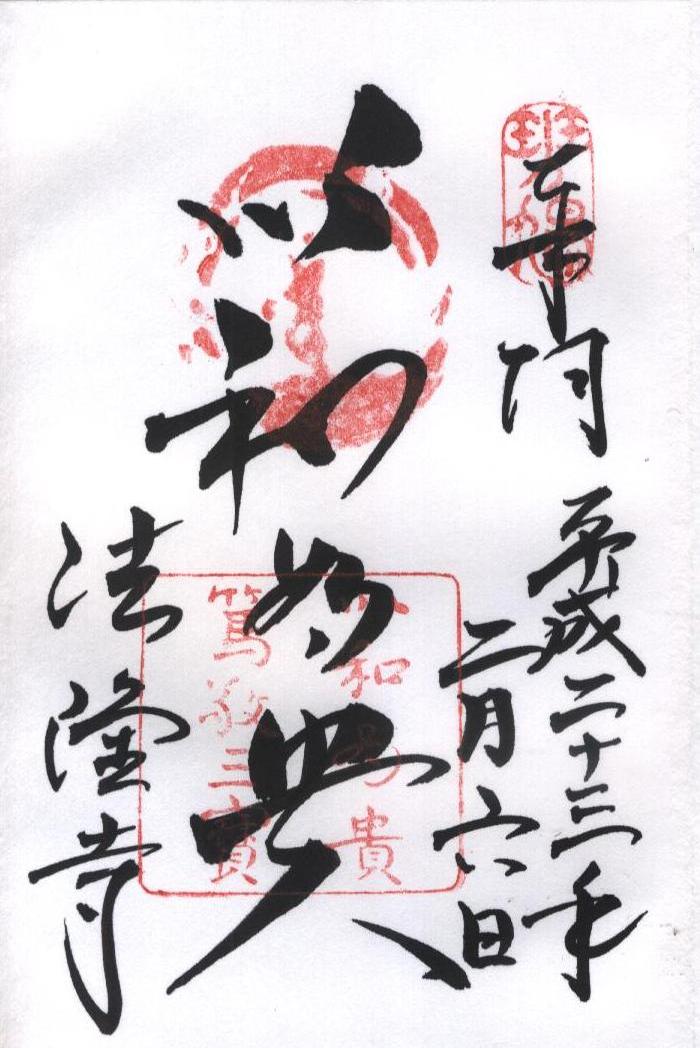 奉拝
平成二十三年
二月六日
以和為貴
法隆寺
以和為貴
篤敬三寳